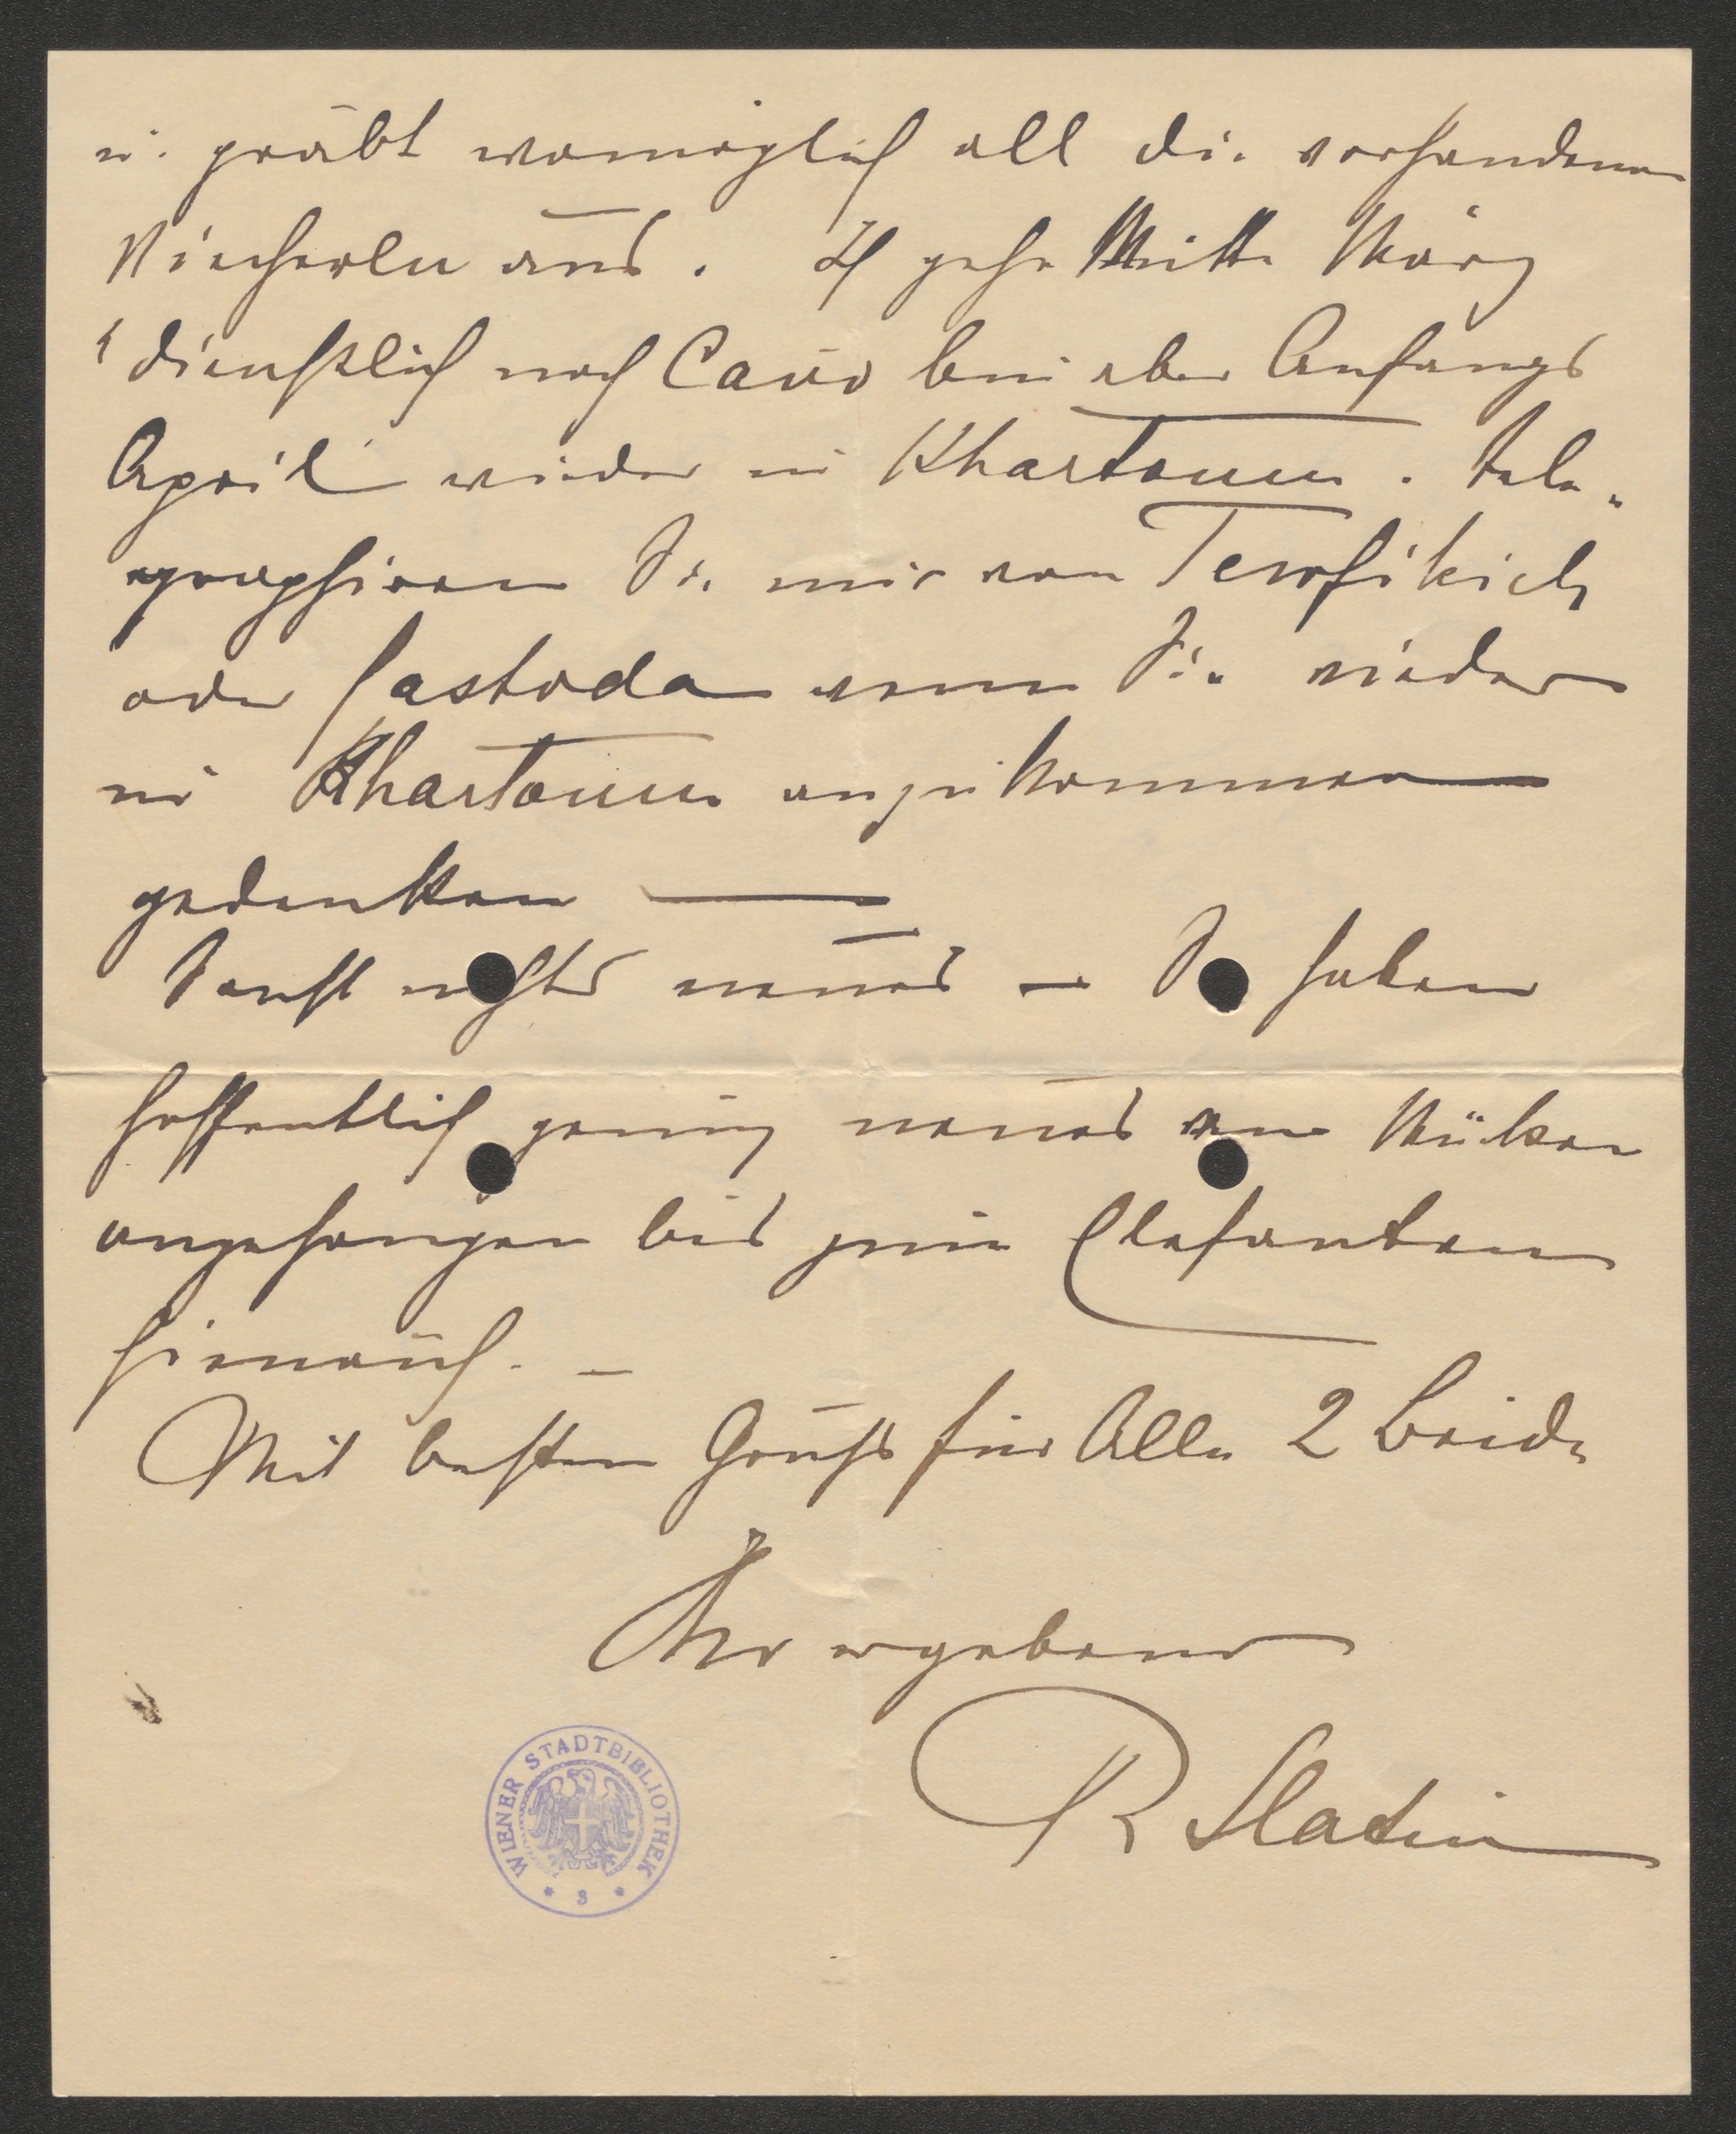 u. gräbt womöglich all die vorhandenen
Viecherln aus. Ich gehe Mitte März
dienstlich nach Cairo bin aber Anfangs
April wieder in Khartoum. Tele-
graphiren Sie mir von Tewfikieh
oder Faschoda wenn Sie wieder
in Khartoum anzukommen
gedenken —
Sonst nichts neues — Sie haben
hoffentlich genug neues von Mücken
angefangen bis zum Elefanten
hinauf. —
Mit besten Gruß für Alle 2 Beide
Ihr ergebener
R Slatin
WIENER STADTBIBLIOTHEK